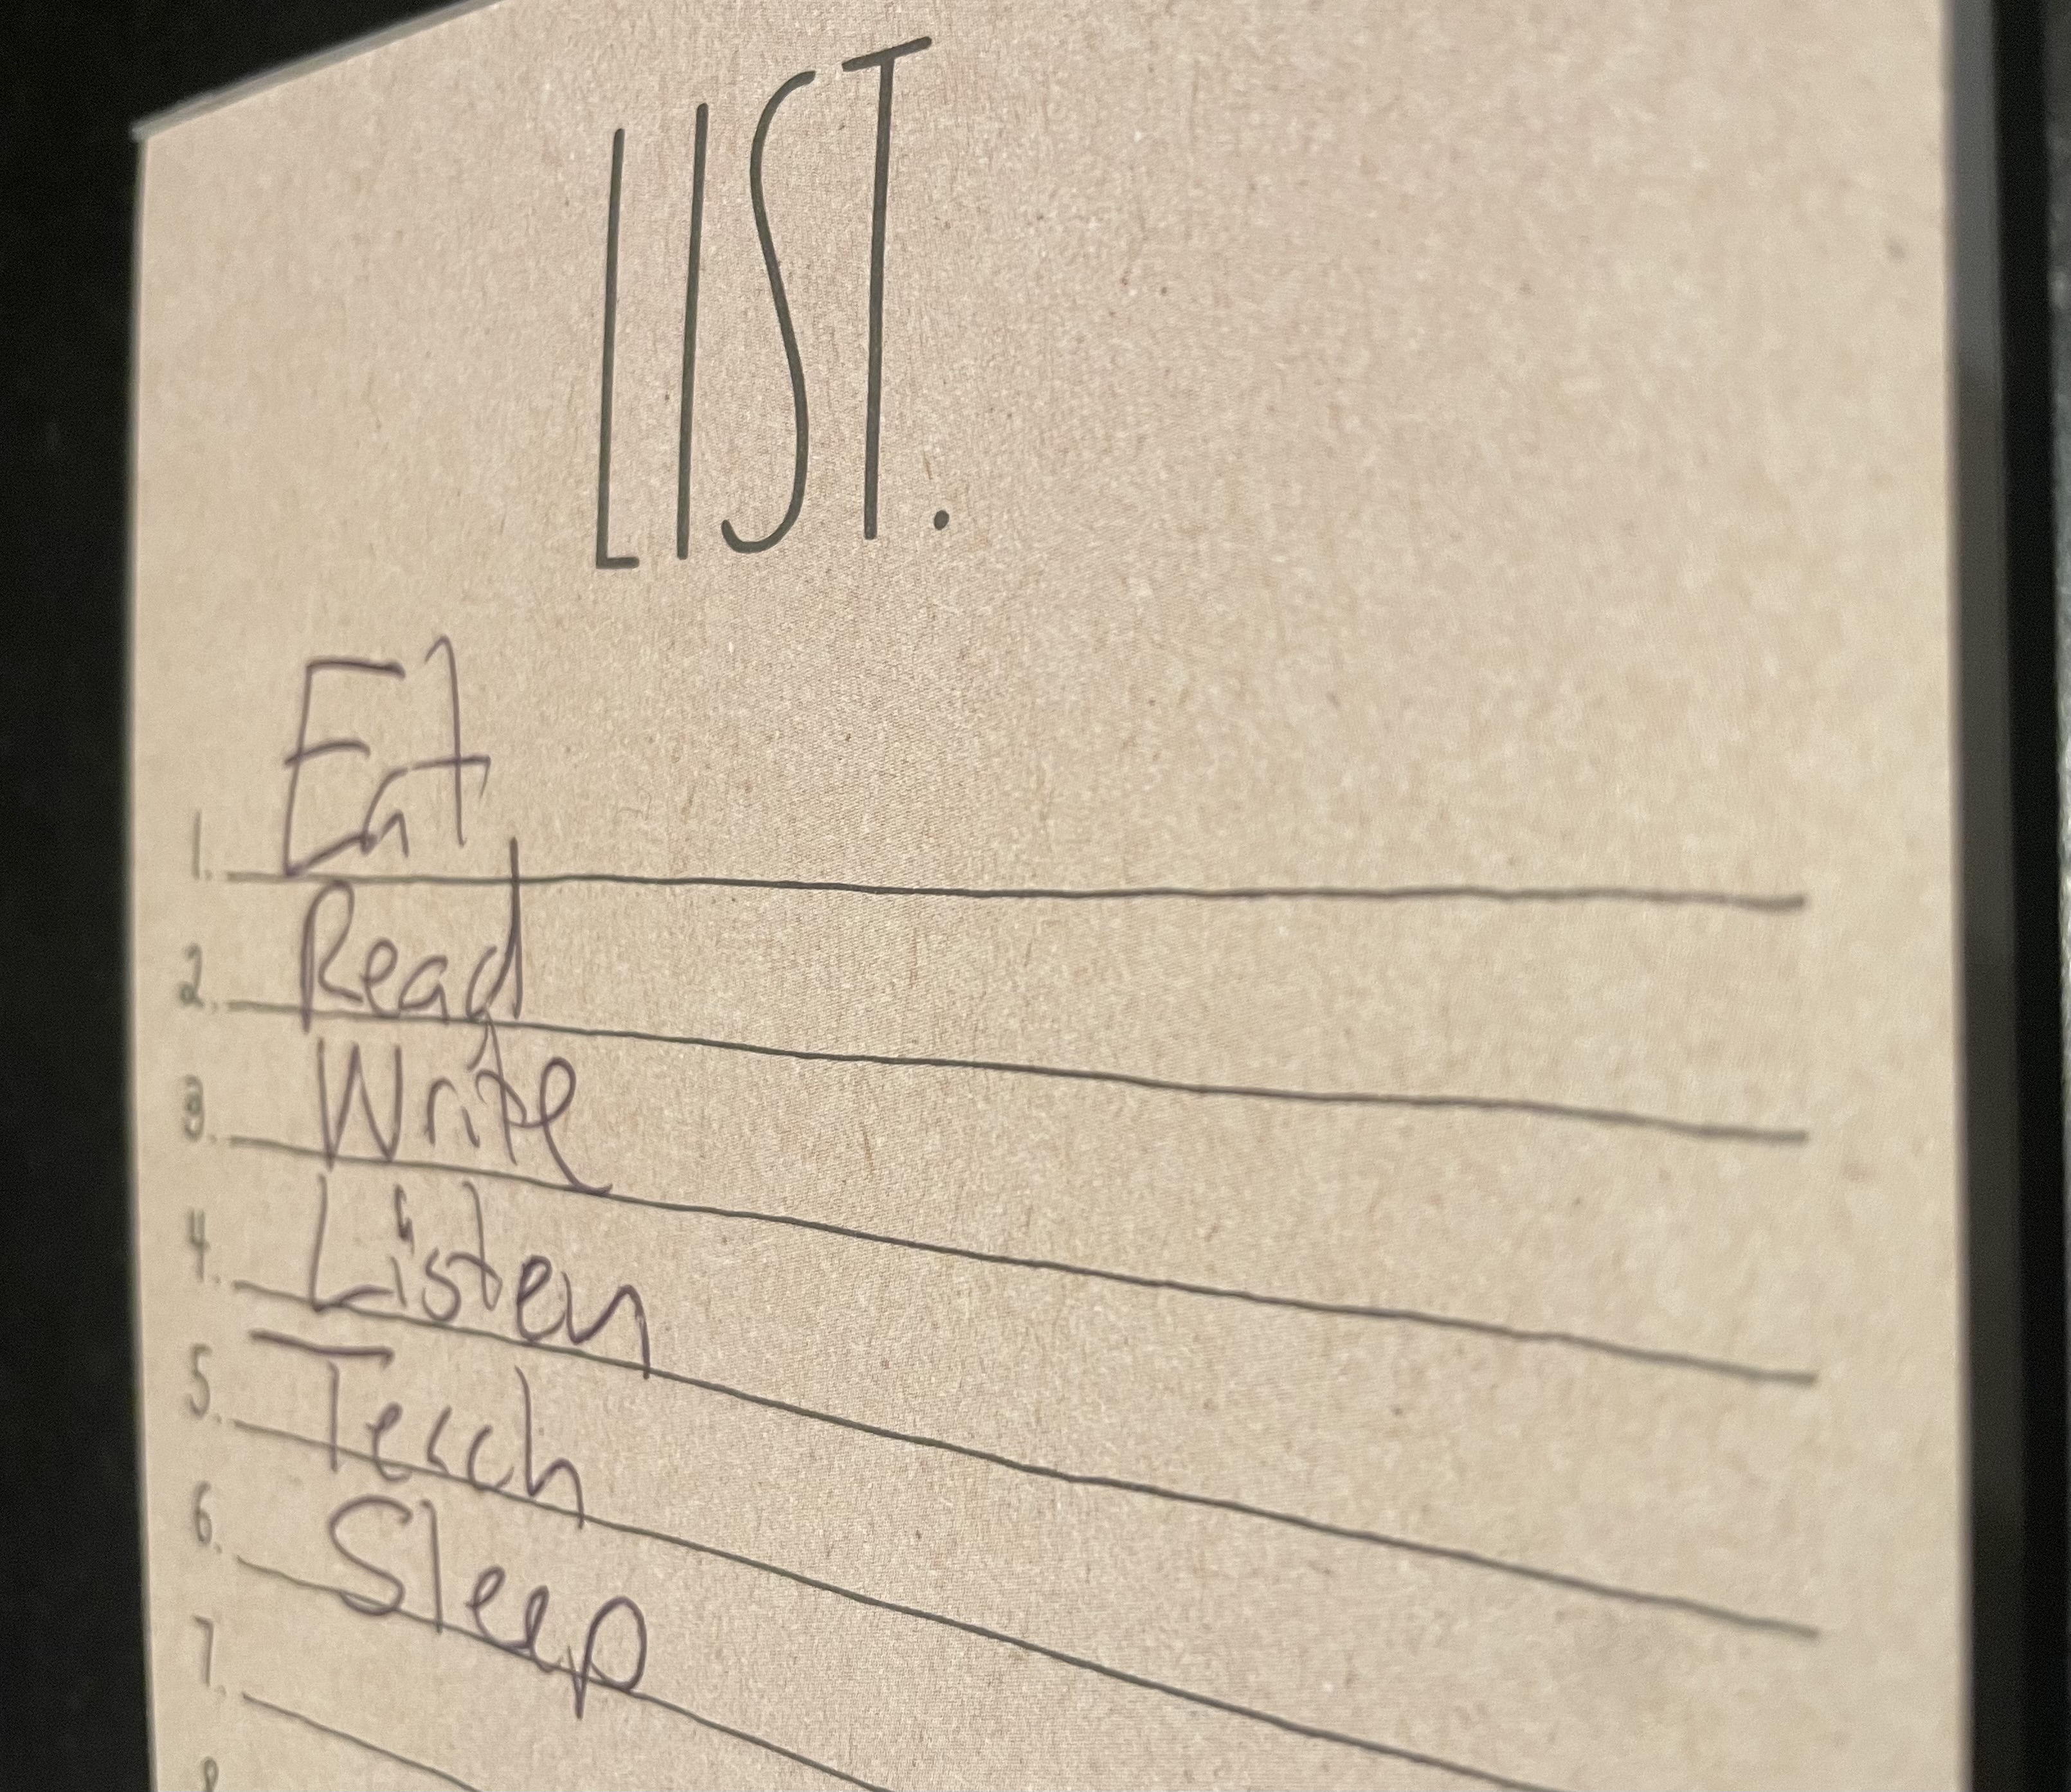 LIST.
1. Eat
2. Read
3. Write
4. Listen
5. Teach
6. Sleep
7.
8